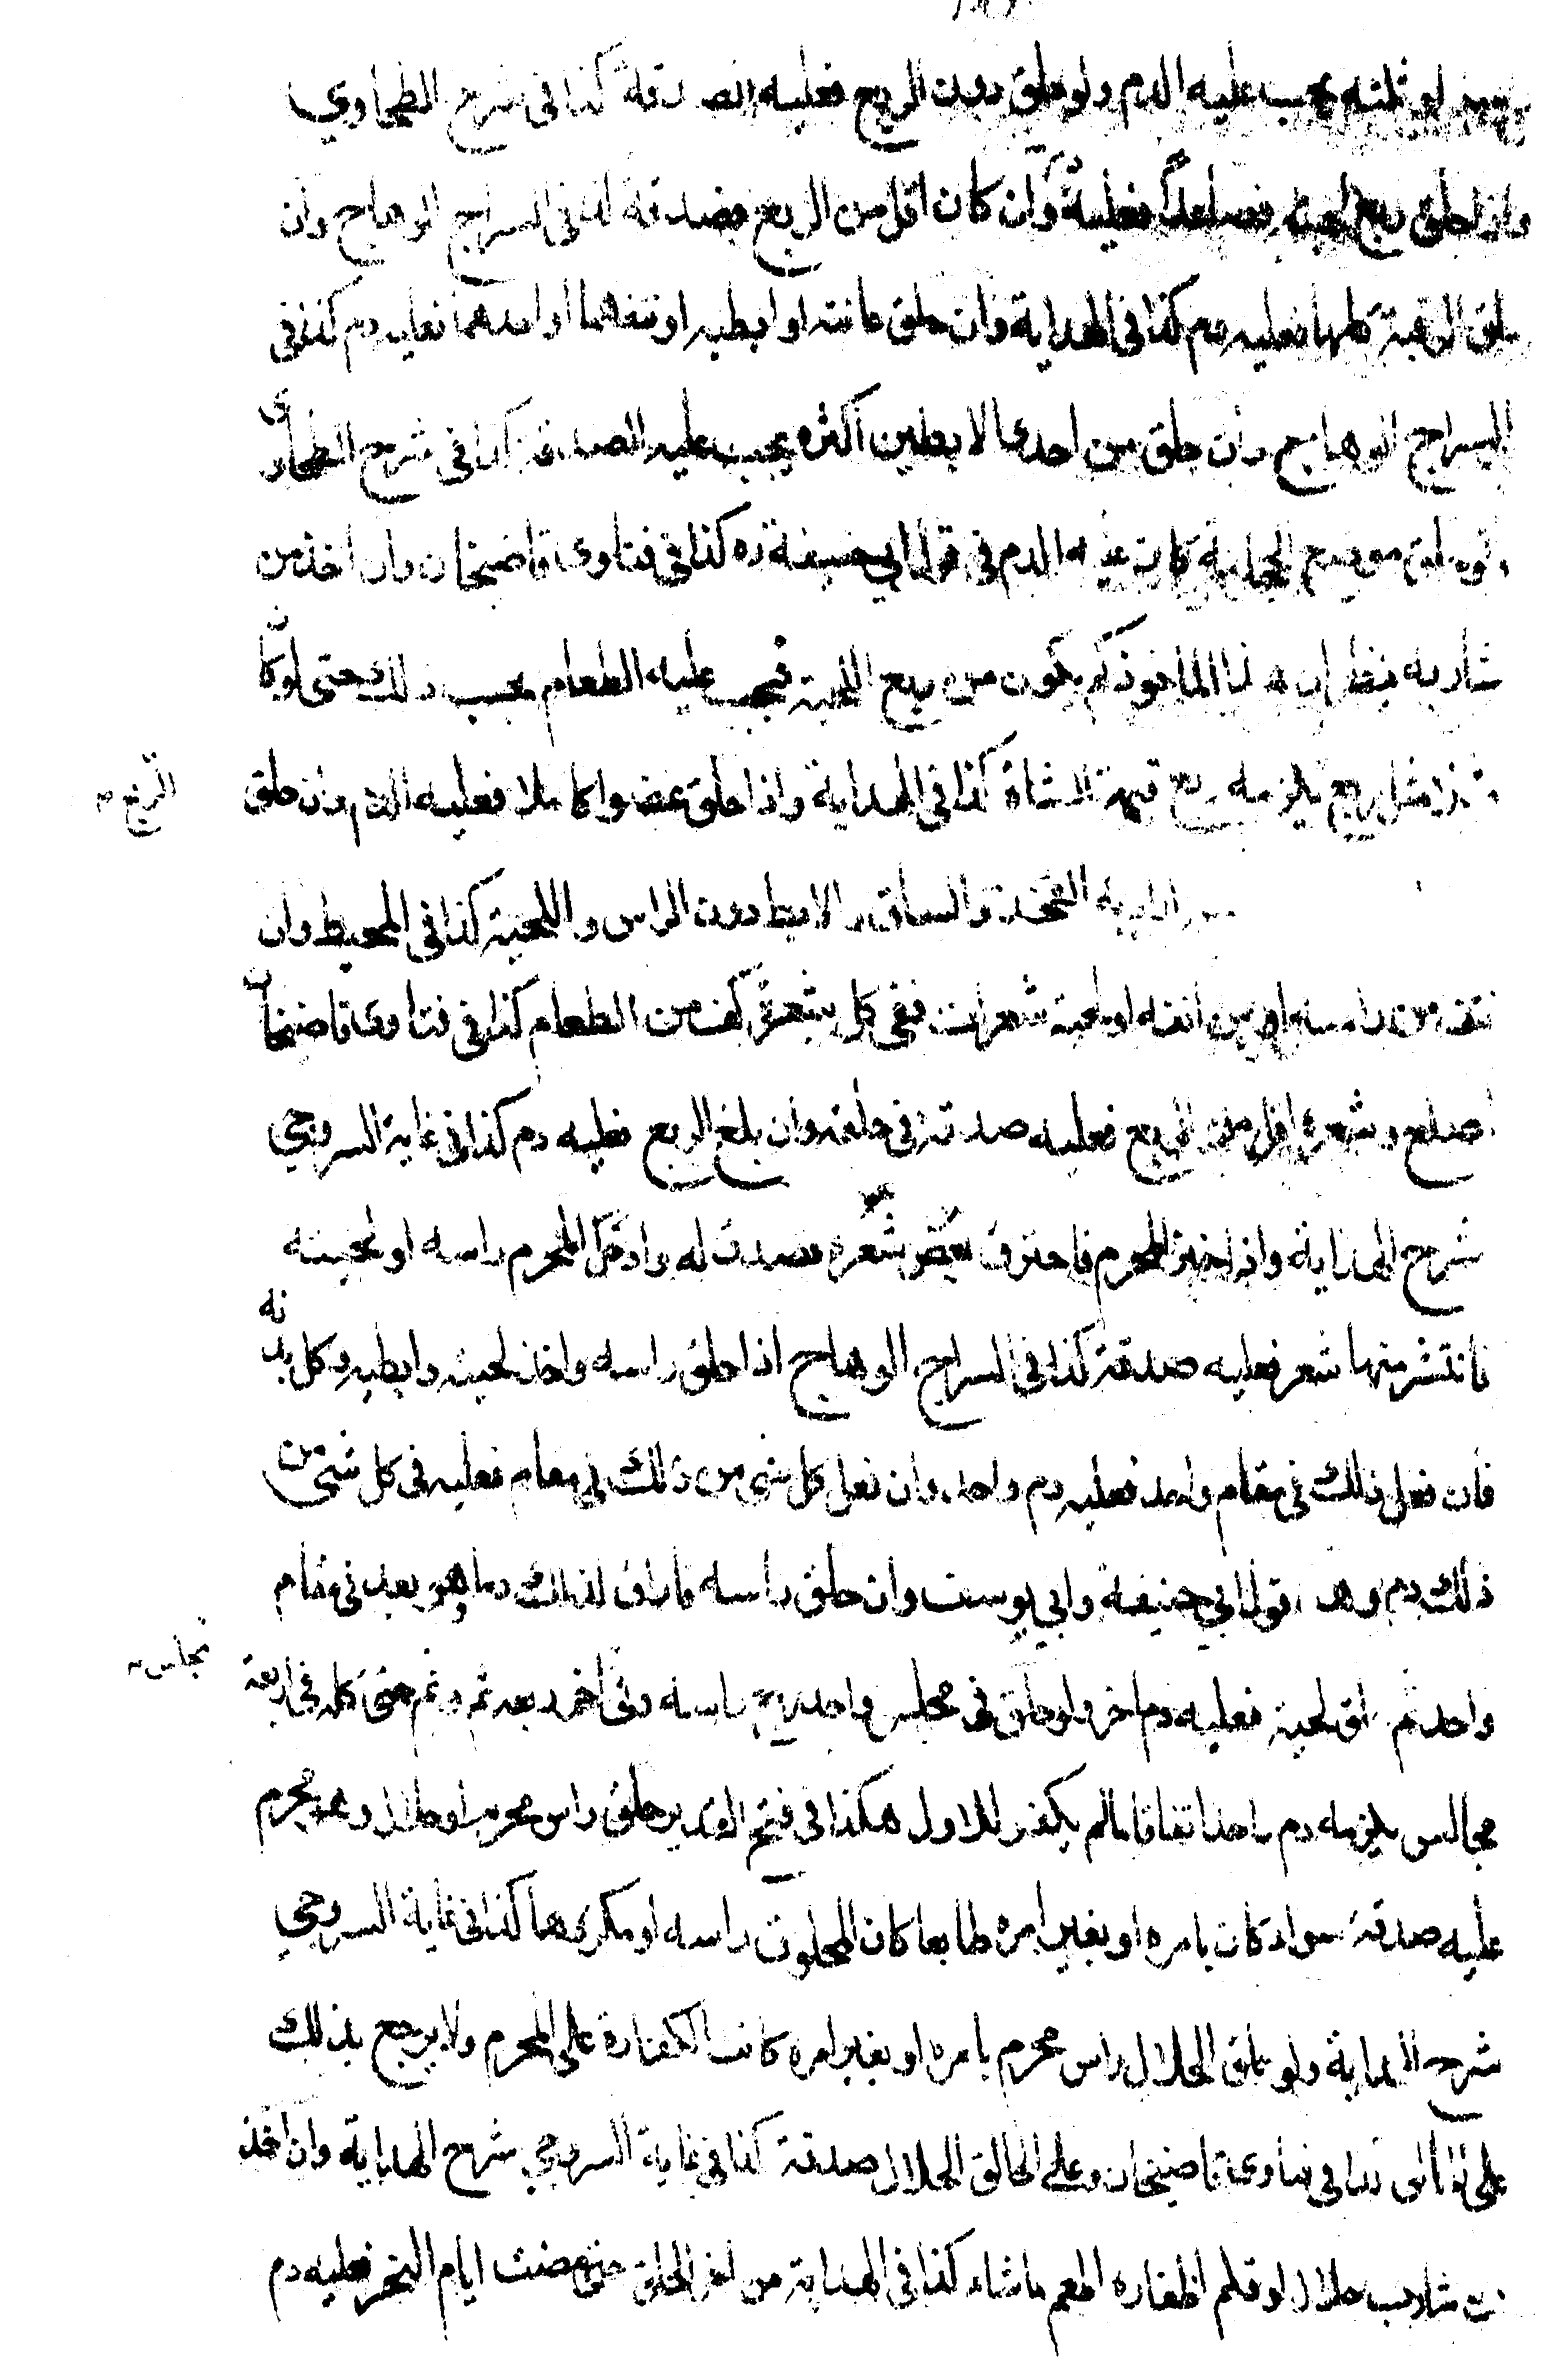 او ثلثه يجب عليه الدم ولو حلق دون الربع فعليه الصدقة كذا فى شرح الطحاوي
واذا حلق ربع لحيته فصاعدا فعليه دم وان كان اقل من الربع فصدقة كذا فى السراج الوهاج وان
حلق الرقبة كلها فعليه دم كذا فى الهداية وان حلق عانته او ابطيه او نتفهما او احدهما فعليه دم كذا فى
السراج الوهاج وان حلق من احدى الابطين اكثره يجب عليه الصدقة كذا فى شرح الطحاوى
ولو حلق موضع المحاجم كان عليه الدم فى قول ابي حنيفة ره كذا فى فتاوى قاضيخان وان اخذ من
شاربه ينظر ان هذا الماخوذ كم يكون من ربع اللحية فيجب عليه الطعام بحسب ذلك حتى لو كان
مثلا ربع يلزمه ربع قيمة الشاة كذا فى الهداية واذا حلق عضوا كاملا فعليه الدم وان حلق
الربع
اراد به الفخذ والساق والابط دون الراس واللحية كذا فى المحيط وان
نتف من راسه او من انفه او لحيته شعرات ففى كل شعرة كف من الطعام كذا فى فتاوى قاضيخان
اصلع وشعره اقل من الربع فعليه صدقة فى حلقه وان بلغ الربع فعليه دم كذا فى غاية السروجي
شرح الهداية واذا خبز المحرم فاحترق بعض شعره تصدق له واذا المحرم راسه او لحيته
فانتثر منها شعر فعليه صدقة كذا فى السراج الوهاج اذا حلق راسه واخذ لحيته وابطيه وكل بدنه
فان فعل ذلك فى مقام واحد فعليه دم واحد وان فعل كل شي من ذلك فى مقام فعليه فى كل شي من
ذلك دم وهو قول ابي حنيفة وابي يوسف وان حلق راسه فاراق لذلك دما وهو بعد فى مقام
واحد ثم حلق لحيته فعليه دم اخر ولو حلق فى مجلس واحد ربع راسه وفى اخر ربعه ثم وثم حتى كله فى اربعة
مجلس
مجالس يلزمه دم واحد اتفاقا ما لم يكفر للاول هكذا فى فتح القدير حلق راس محرم او حلال وهو محرم
عليه صدقة سواء كان بامره او بغير امره طايعا كان المحلوق راسه او مكرها كذا فى غاية السروجي
شرح الهداية ولو حلق الحلال راس محرم بامره او بغير امره كانت الكفارة على المحرم ولا يرجع بذلك
على الحالق كذا فى فتاوى قاضيخان وعلى الحالق الحلال صدقة كذا فى غاية السروجي شرح الهداية وان اخذ
من شارب حلال او قلم اظفاره اطعم ما شاء كذا فى الهداية من اخر الحلق حتى مضت ايام النحر فعليه دم